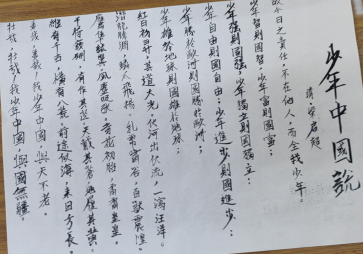 少年中國說
清 梁啟超
故今日之責任，不在他人，而全我少年。
少年智則國智，少年富則國富；
少年強則國強，少年獨立則國獨立；
少年自由則國自由；少年進步則國進步；
少年勝於歐洲則國勝於歐洲；
少年雄於地球則國雄於地球。
紅日初升，其道大光。伏河出伏流，一瀉汪洋。
潛龍騰淵，鱗爪飛揚。乳虎嘯谷，百獸震惶。
鷹隼試翼，風塵吸張。奇花初胎，矞矞皇皇。
干將發硎，有作其芒。天戴其蒼，地履其黃。
縱有千古，橫有八荒。前途似海，來日方長。
美哉，我少年中國，與天不老。
壯哉，我少年中國，與國無疆。